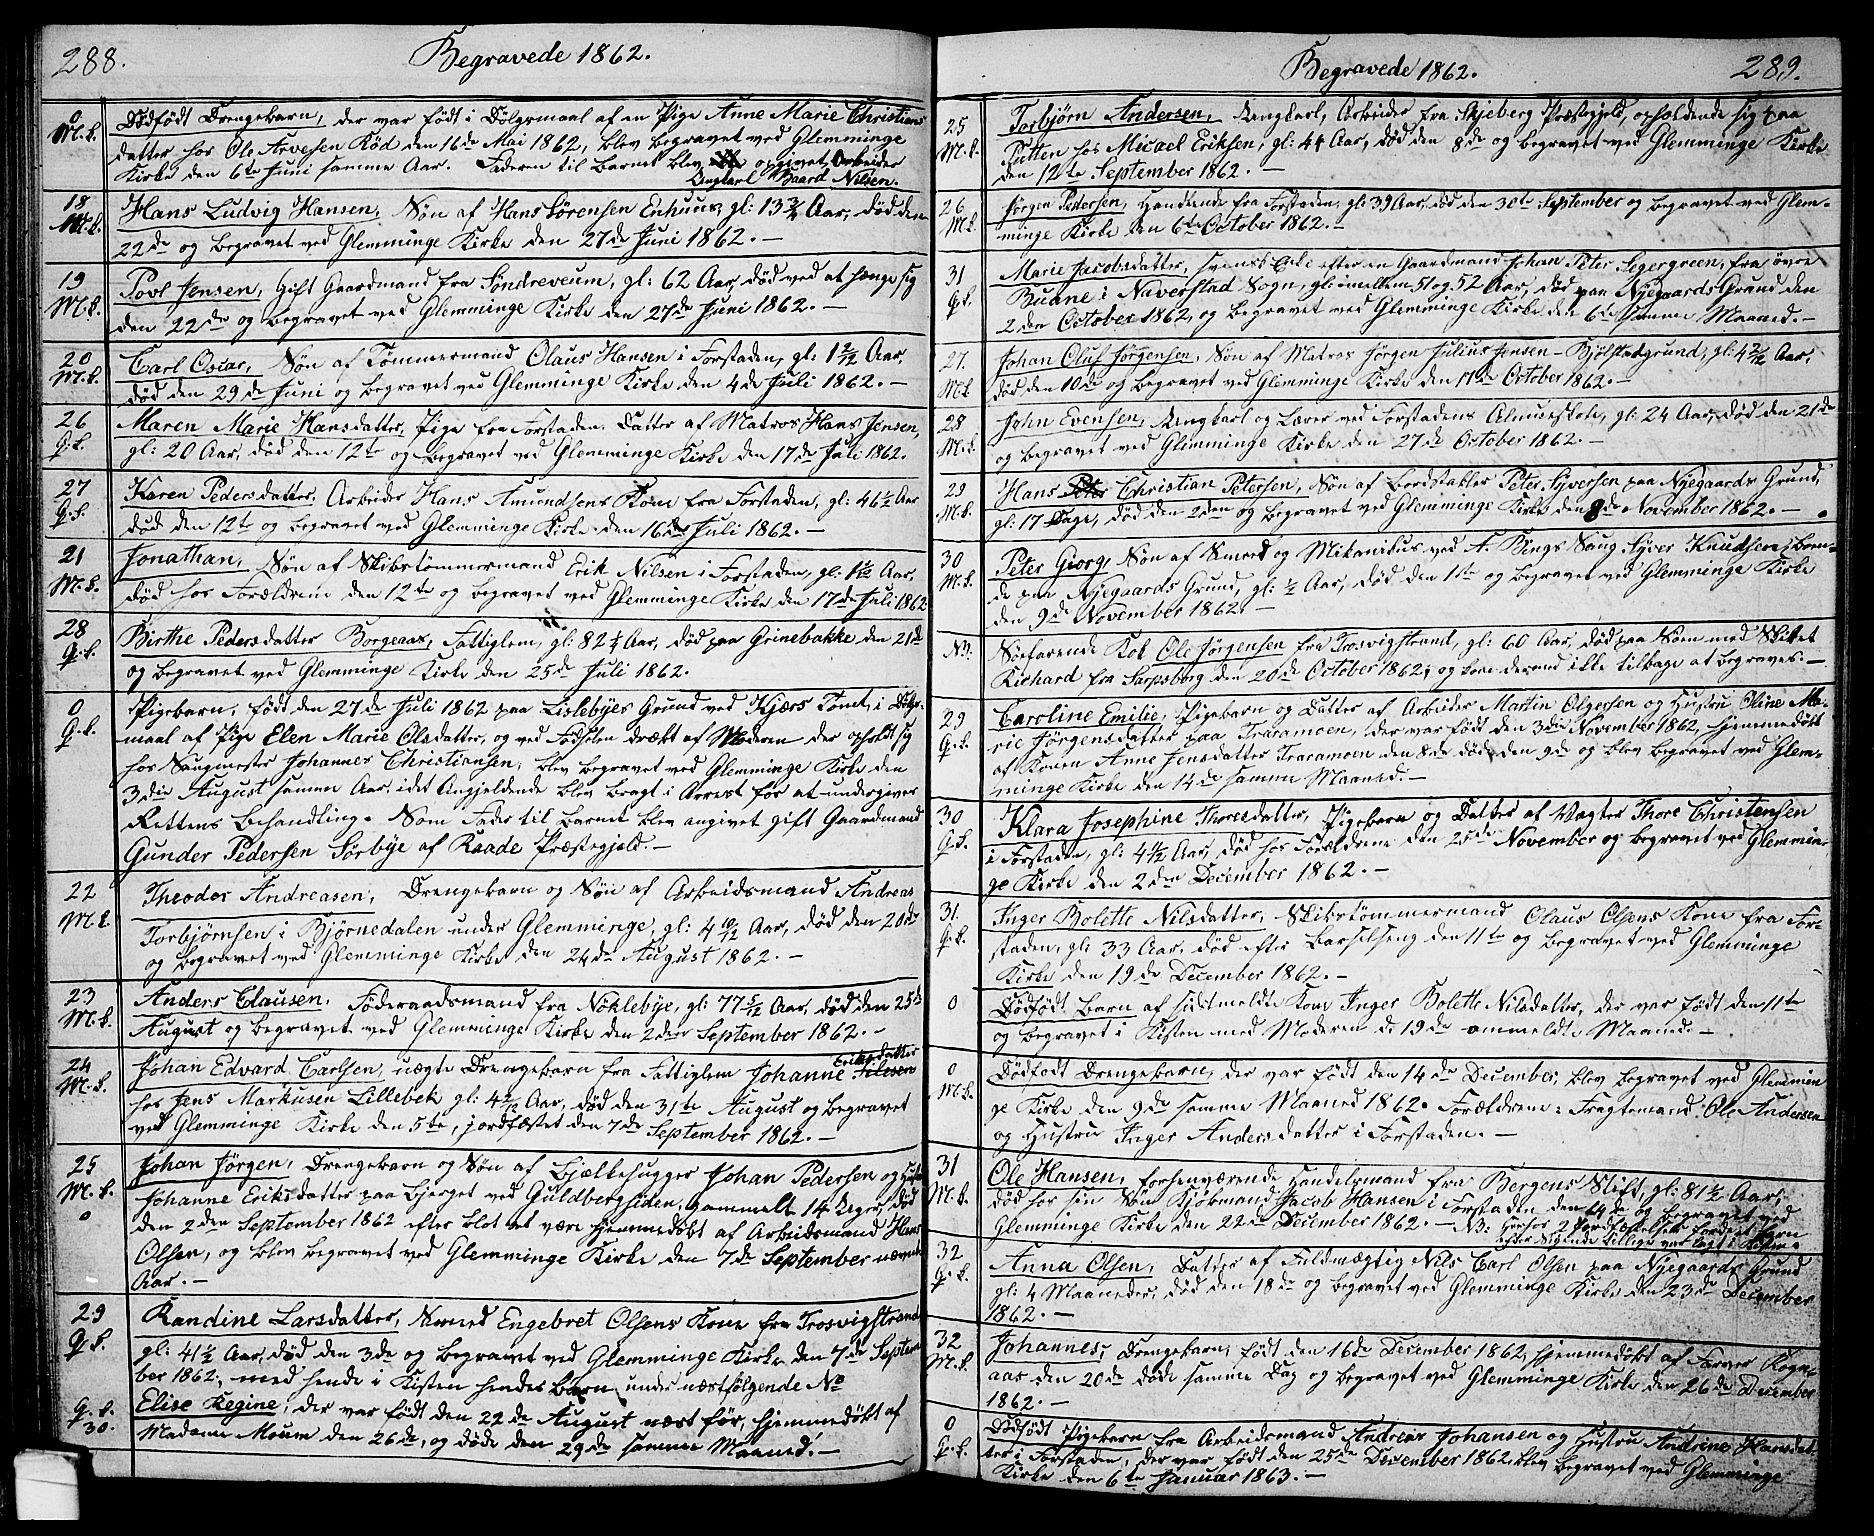 288.
Begravede 1862.
0
M.k.
Dødfødt Drengebarn, der var født i Dølgsmaal af en Pige Anne Marie Christians
datter hos Ole Arvesen Kød den 16de Mai 1862, blev begravet ved Glemminge
Kirke den 6te Juni samme Aar. Faderen til Barnet blev opgivet Arbeider
Ungkarl Baard Nilsen.
18
M.k.
Hans Ludvig Hansen, Søn af Hans Sørensen Enhuus, gl: 13 3/4 Aar, død den
22de og begravet ved Glemminge Kirke den 27de Juni 1862.—
19
M.k.
Povl Jensen, Gift Gaardmand fra Søndreveum, gl: 62 Aar, død ved at henge sig
den 22de og begravet ved Glemminge Kirke den 27de Juni 1862.—
20
M.k.
Carl Oscar, Søn af Tømmermand Olaus Hansen i Forstaden, gl: 1 2/12 Aar,
død den 29de Juni og begravet ved Glemminge Kirke den 4de Juli 1862.—
26
Q.k.
Maren Marie Hansdatter, Pige fra Forstaden. Datter af Matros Hans Jensen,
gl: 20 Aar, død den 12te og begravet ved Glemminge Kirke den 17de Juli 1862.
27
Q.k.
Karen Pedersdatter, Arbeider Hans Amundsens Kone fra Forstaden, gl: 46 1/2 Aar
død den 12te og begravet ved Glemminge Kirke den 16de Juli 1862.—
21
M.k.
Jonathan, Søn af Skibstømmermand Erik Nilsen i Forstaden, gl: 1 1/12 Aar,
død hos Forældrene den 12te og begravet ved Glemminge Kirke den 17de Juli 1862
28
Q.k.
Birthe Pedersdatter Borgeaas, Fattiglem, gl: 82 1/4 Aar, død paa Grinebakke den 21de
og begravet ved Glemminge Kirke den 25de Juli 1862.
0
Q.k.
Pigebarn, født den 27de Juli 1862 paa Lislebyes Grund ved Kjærs Tomt, i Dølgs-
maal af Pige Elen Marie Olsdatter, og ved Fødselen dræbt af Moderen der opholdt sig
hos Saugmester Johannes Christiansen, blev begravet ved Glemminge Kirke den
3die August samme Aar, idet Angjeldende blev bragt i Arrest for at undergives
Rettens Behandling. Som Fader til Barnet blev angivet gift Gaardmand
Gunder Pedersen Sørbye af Raade Præstegjeld.—
22
M.k.
Theodor Andreasen, Drengebarn og Søn af Arbeidsmand Andreas
Torbjørnsen i Bjørnedalen under Glemminge, gl: 4 10/12 Aar, død den 20de
og begravet ved Glemminge Kirke den 24de August 1862.—
23
M.k.
Anders Clausen, Føderaadsmand fra Nøklebye, gl: 77 5/12 Aar, død den 25de
August og begravet ved Glemminge Kirke den 2den September 1862.—
24
M.k.
Johan Edvard Carlsen, uægte Drengebarn fra Fattiglem Johanne Eriksdatter
hos Jens Markusen Lillebek gl: 4 2/12 Aar, død den 31te August og begravet
ved Glemminge Kirke den 5te, jordfæstet den 7de September 1862.—
25
M.k.
0
Johan Jörgen, Drengebarn og Søn af Bjælkehugger Johan Pedersen og Hustru
Johanne Eriksdatter paa Bjerget ved Guldbergsiden, gammelt 14 Uger, død
den 2den September 1862 efter blot at være Hjemmedøbt af Arbeidsmand Hans
Olsen, og blev begravet ved Glemminge Kirke den 7de September nævnte
Aar.—
29
Q.k.
Randine Larsdatter, Nomed Engebret Olsens Kone fra Trosvigstrand
gl: 41 1/2 Aar, død den 3de og begravet ved Glemminge Kirke den 7de Septem
ber 1862, med hende i Kisten hendes Barn under næstfølgende No
Q.k.
30.
Elise Regine, der var født den 22de August næst før, hjemmedøbt af
Madame Moum den 26de, og døde den 29de samme Maaned.—
Begravede 1862.
289.
25
M.k.
Torbjørn Andersen, Ungkarl, Arbeider fra Skjeberg Præstegjeld, opholdende sig paa
Putten hos Micael Eriksen, gl: 44 Aar, død den 8de og begravet ved Glemminge Kirke
den 12te September 1862.—
26
M.k.
Jörgen Pedersen, Handlende fra Forstaden, gl: 39 Aar, død den 30te September og begravet ved Glem-
minge Kirke den 6te October 1862.—
31
Q.k.
Marie Jacobsdatter, svensk Enke efter en Gaardmand Johan Peter Segergreen, fra øvre
Buane i Naverstad Sogn, gl: imellem 51 og 52 Aar, død paa Nyegaards Grund den
2den October 1862, og begravet ved Glemminge Kirke den 6te samme Maaned.—
27.
M.k
Johan Oluf Jørgensen, Søn af Matros Jörgen Julius Jensen - Bjølstadgrund, gl: 4 2/12 Aar,
død den 10de og begravet ved Glemminge Kirke den 17de October 1862.—
28
M.k.
John Evensen, Ungkarl og Lærer ved Forstadens Almueskole, gl: 24 Aar, død den 21de
og begravet ved Glemminge Kirke den 27de October 1862.—
29
M.k.
Hans Christian Petersen, Søn af Bordstabler Peter Syversen paa Nyegaards Grund,
gl: 17 Dage, død den 2den og begravet ved Glemminge Kirke den 8de November 1862.—
30
M.k.
Peter Georg, Søn af Smed og Mekanikus ved A. Bings Saug, Syver Knudsen, boen-
de paa Nyegaards Grund, gl: 1/2 Aar, død den 1ste og begravet ved Glemminge Kirke
den 9de November 1862.—
NB.
Søefarende Kok Ole Jørgensen fra Trosvigstrand, gl: 60 Aar, død paa Søen med Skibet
Richard fra Sarpsborg den 20de October 1862, og kom derved ikke tilbage at begraves.—
29
Q.k.
Caroline Emilie, Pigebarn og Datter af Arbeider Martin Olgersen og Hustru Oline Ma-
rie Jörgensdatter paa Traramoen, der var født den 3die November 1862, hjemmedøbt
af Konen Anne Jensdatter Traramoen den 8de døde den 9de og blev begravet ved Glem-
minge Kirke den 14de samme Maaned.—
30
Q.k.
Klara Josephine Thoresdatter, Pigebarn og Datter af Vægter Thore Christensen
i Forstaden, gl: 4 1/2 Aar, død hos Forældrene den 25de November og begravet ved Glemmin-
ge Kirke den 2den December 1862.—
31.
Q.k.
Inger Bolette Nilsdatter, Skibstømmermand Olaus Olsens Kone fra For-
staden, gl: 33 Aar, død efter Barselseng den 11te og begravet ved Glemminge
Kirke den 19de December 1862.—
0
Dødfødt Barn af sidstmeldte Kone Inger Bolette Nilsdatter, der var født den 11te
og begravet i Kisten med Moderen d: 19de ommeldte Maaned.—
0
M.k.
Dødfødt Drengebarn, der var født den 14de December, blev begravet ved Glemmin
ge Kirke den 9de samme Maaned 1862. Forældrene: Fragtemand Ole Andersen
og Hustru Inger Andersdatter i Forstaden.—
31
M.k.
Ole Hansen, forhenværende Handelsmand fra Bergens Stift, gl: 81 1/2 Aar,
død hos sin Søn Kjøbmand Jacob Hansen i Forstaden den 14de og begravet ved
Glemminge Kirke den 22de December 1862.— NB: Herfor 2 Jordfæstelser
32
Q.k.
Anna Olsen, Datter af Fuldmægtig Nils Carl Olsen paa Nyegaards Grund
gl: 4 Maaneder, død den 18de og begravet ved Glemminge Kirke den 23de December
1862.—
32
M.k.
Johannes, Drengebarn, født den 16de December 1862, hjemmedøbt af Farver Rogn-
aas den 20de døde samme Dag og begravet ved Glemminge Kirke den 26de December
1862.—
0
Q.k.
Dødfødt Pigebarn fra Arbeidsmand Andreas Johansen og Hustru Andrine Hansdat-
ter i Forstaden, der var født den 25de December 1862, blev begravet ved Glemminge
Kirke den 6te Januar 1863.—